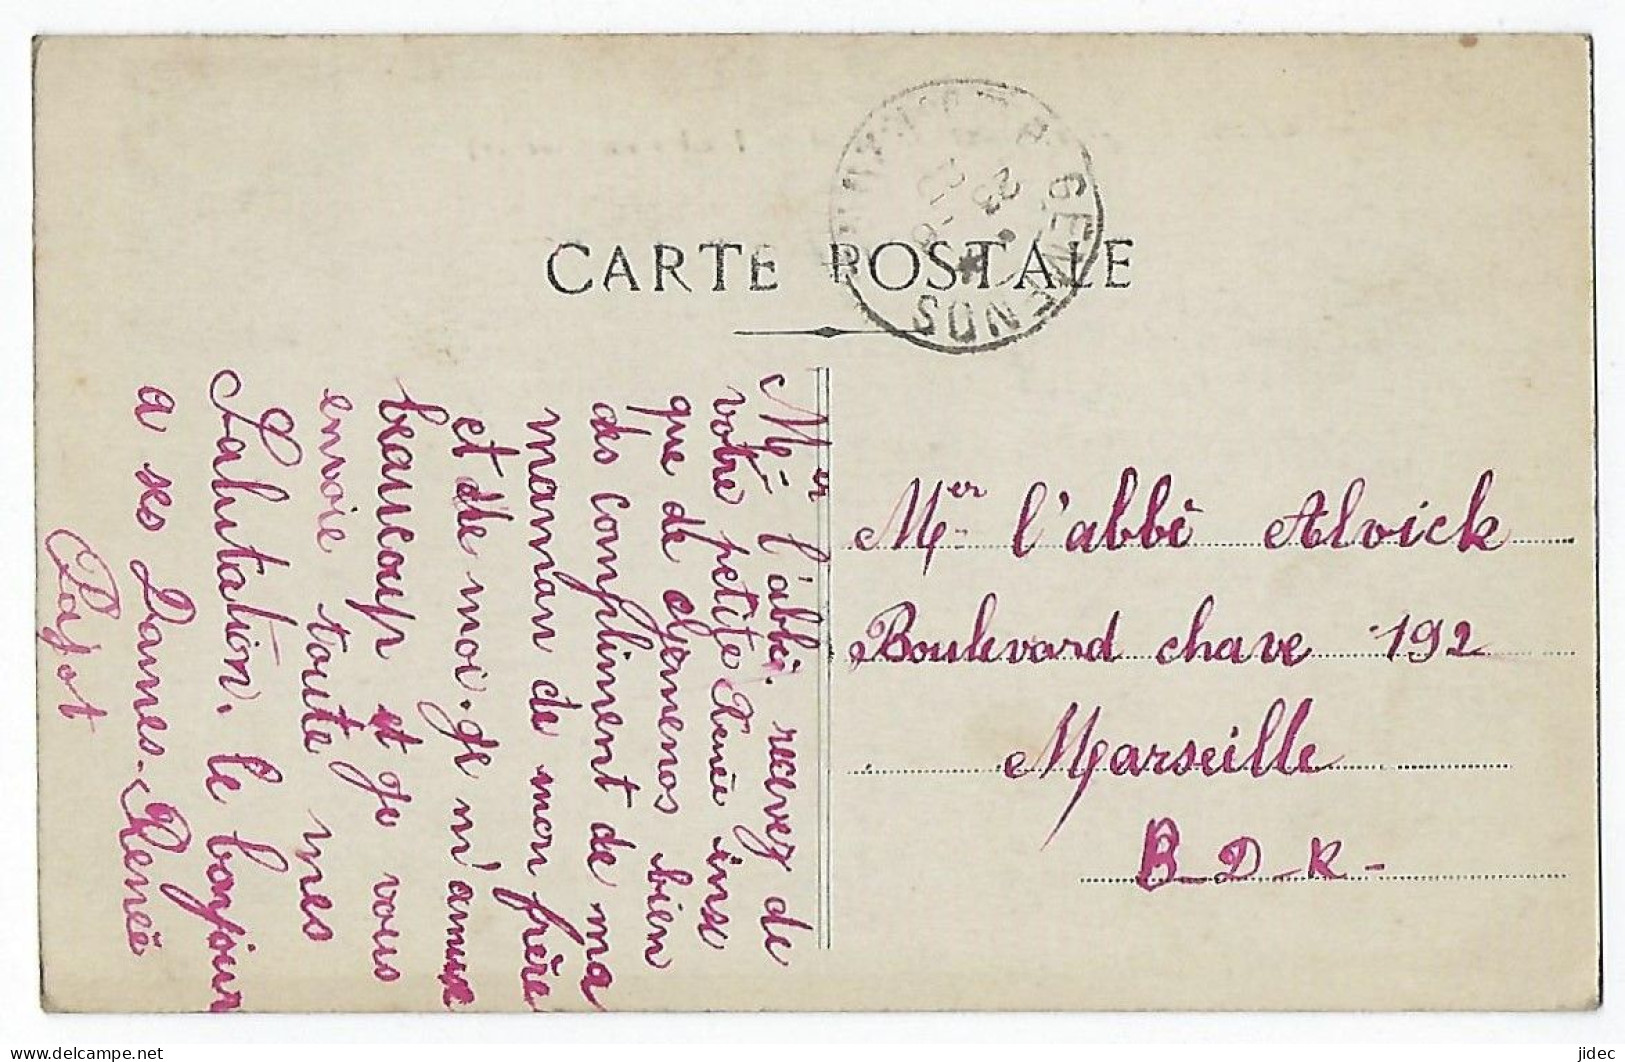 CARTE POSTALE
GEMENOS
23
Mer l'abbé Alvick
Boulevard chave 192
Marseille
B-D-R-
Mer l'abbé. recevez de
votre petite Renée insi
que de gemenos bien
des compliment de ma
maman de mon frère
et de moi. je m'amuse
beaucoup et je vous
envoie toute mes
Salutation. le bonjour
a ses Dames. Renée
Pajot
jidec